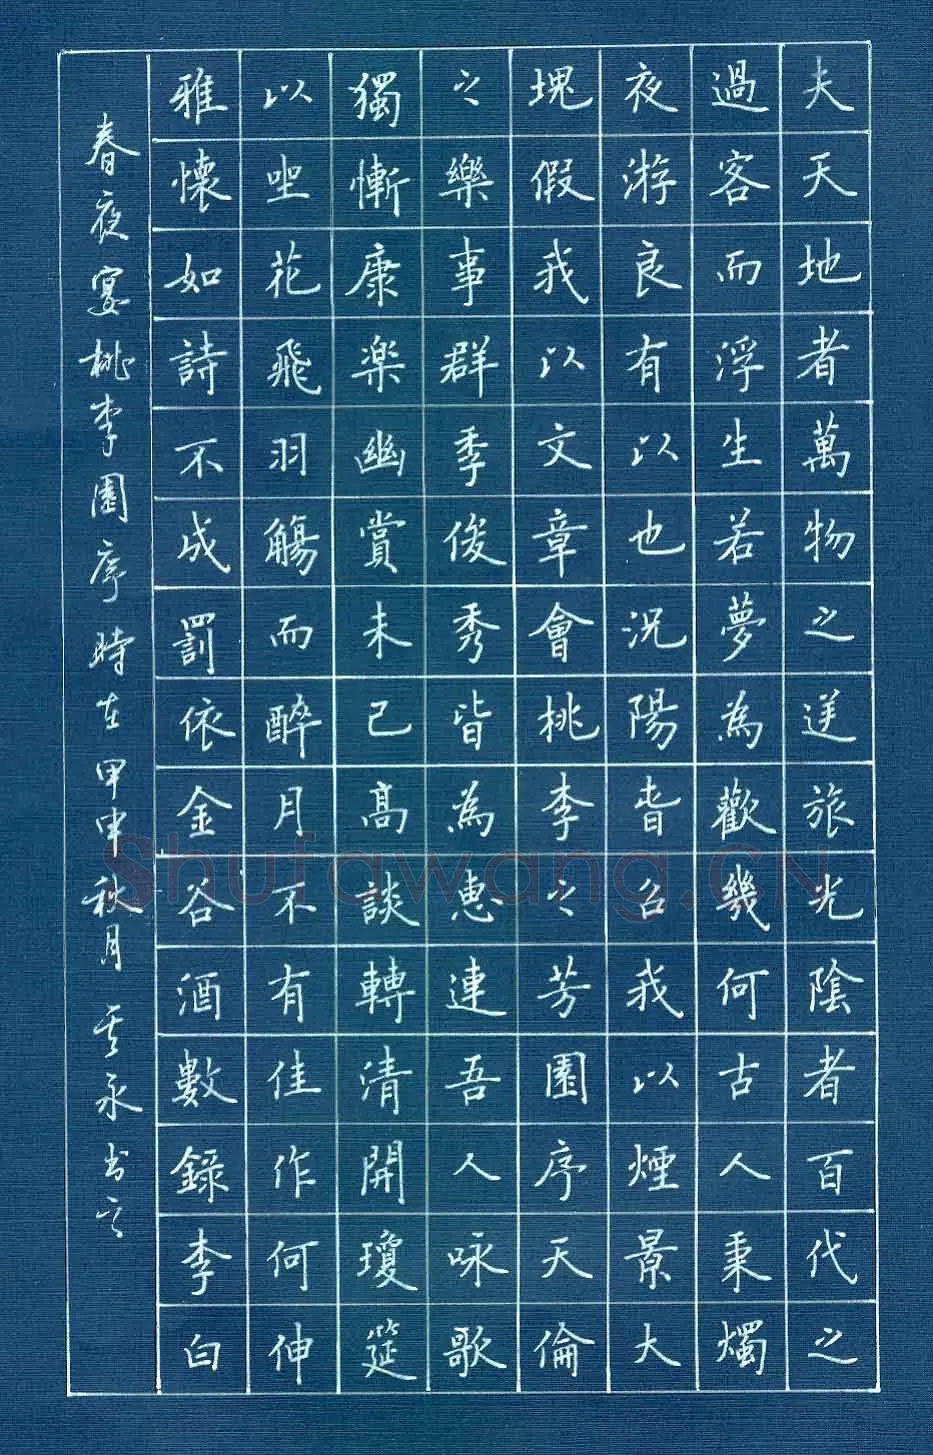 夫天地者萬物之逆旅光陰者百代之
過客而浮生若夢為歡幾何古人秉燭
夜游良有以也況陽春召我以煙景大
塊假我以文章會桃李之芳園序天倫
之樂事群季俊秀皆為惠連吾人咏歌
獨慚康楽幽賞未已高談轉清開瓊筵
以坐花飛羽觴而醉月不有佳作何伸
雅懷如詩不成罰依金谷酒數錄李白
春夜宴桃李園序時在甲申秋月永书之
Shufawang.CN